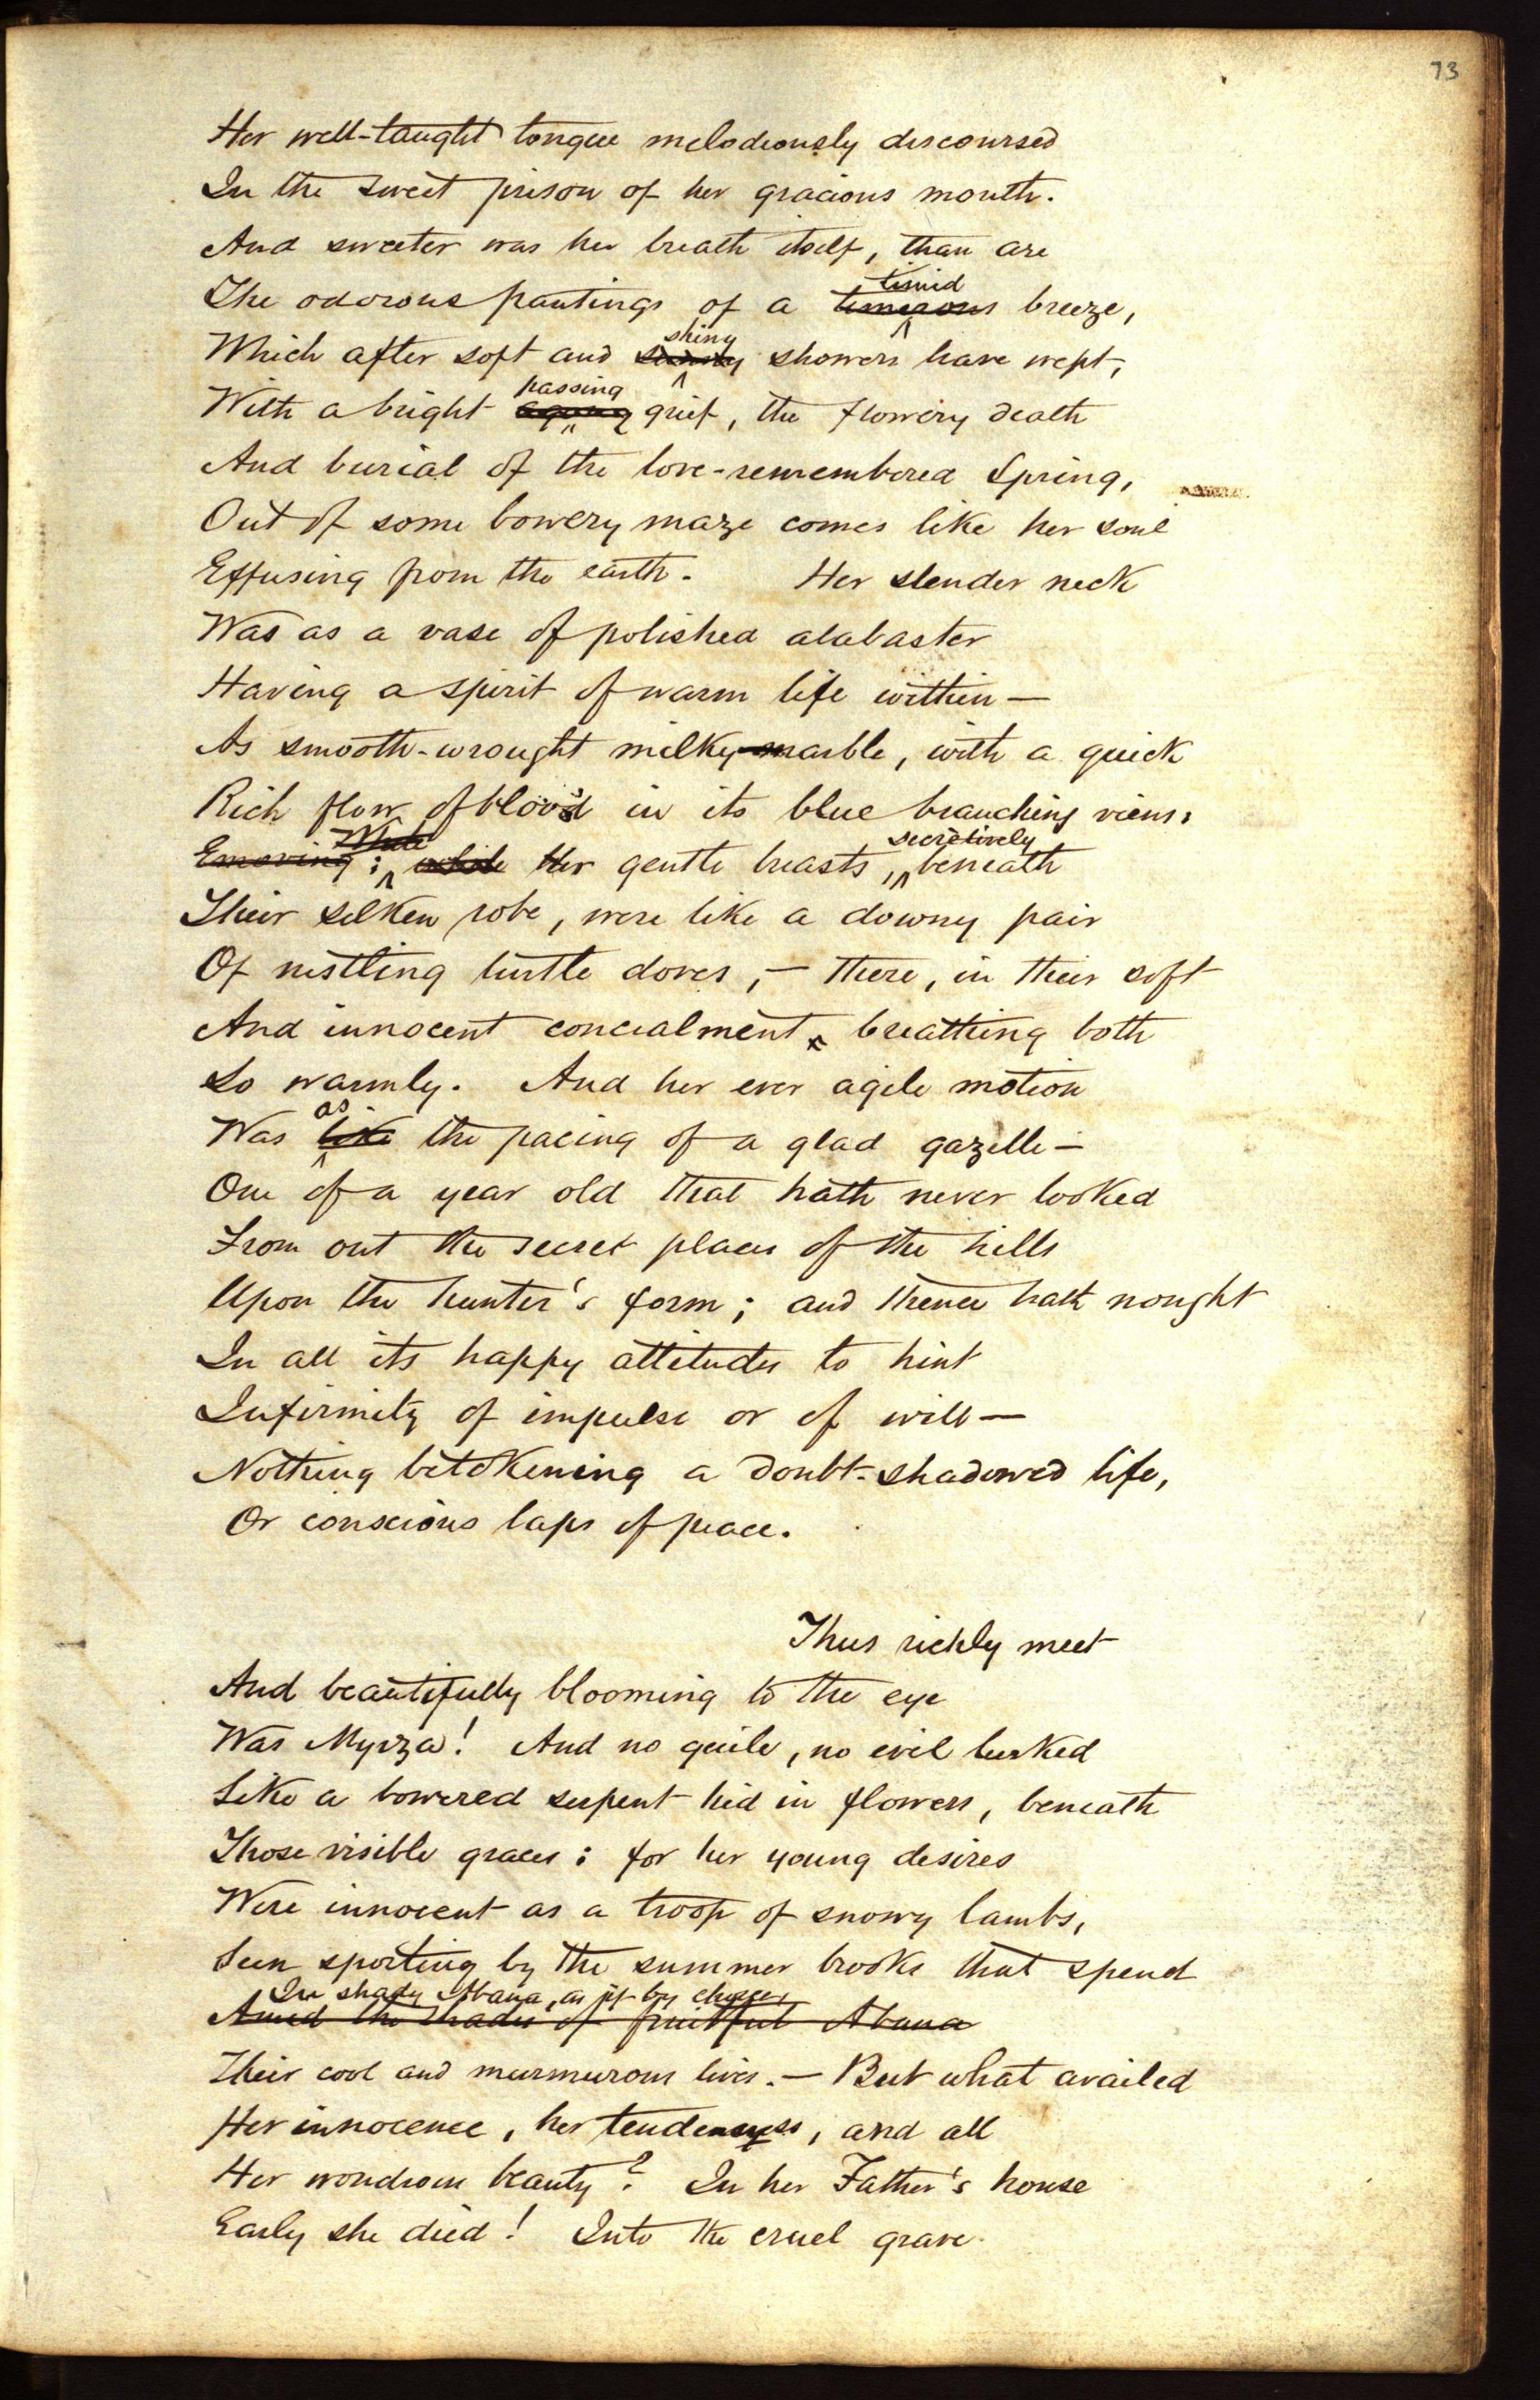 73
Her well-taught tongue melodiously discoursed
In the sweet prison of her gracious mouth.
And sweeter was her breath itself, than are
timid
The odorous pantings of a timerous breeze,
shiny
Which after soft and showers have wept,
passing
With a bright agony grief, the flowery death
And burial of the love-remembered Spring,
Out of some bowery maze comes like her soul
Effusing from the earth. Her slender neck
Was as a vase of polished alabaster
Having a spirit of warm life within —
As smooth-wrought milky marble, with a quick
Rich flow of blood in its blue branching viens:
While secretively
Emoving: while Her gentle breasts, beneath
Their silken robe, were like a downy pair
Of nistling turtle doves, — there, in their soft
And innocent concealment, breathing both
So warmly. And her ever agile motion
as
Was like the pacing of a glad gazelle —
One of a year old that hath never looked
From out the secret places of the hills
Upon the hunter's form; and thence hath nought
In all its happy attitudes to hint
Infirmity of impulse or of will —
Nothing betokening a doubt-shadowed life,
Or conscious laps of peace.
Thus richly meet
And beautifully blooming to the eye
Was Myrza! And no guile, no evil lurked
Like a bowered serpent hid in flowers, beneath
Those visible graces: for her young desires
Were innocent as a troop of snowy lambs,
Seen sporting by the summer brooks that spend
In shady Abana, as if by choice,
Amid the shades of fruitful Abana
Their cool and murmurous lives. — But what availed
Her innocence, her tenderness, and all
Her wondrous beauty? In her Father's house
Early she died! Into the cruel grave